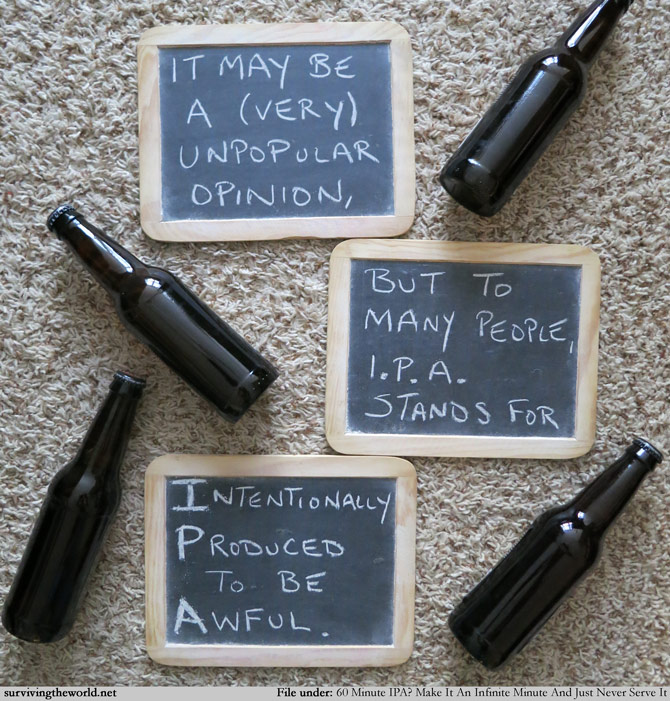 IT MAY BE
A (VERY)
UNPOPULAR
OPINION,
BUT TO
MANY PEOPLE,
I.P.A.
STANDS FOR
INTENTIONALLY
PRODUCED
TO BE
AWFUL.
survivingtheworld.net
File under: 60 Minute IPA? Make It An Infinite Minute And Just Never Serve It